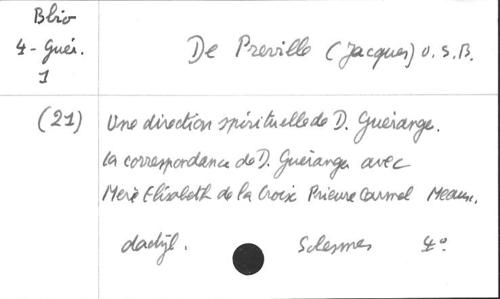 Blio
4 - Guér.
1
De Preville (Jacques) O. S. B.
(21)
Une direction spirituelle de D. Guérange.
la correspondance de D. Guéranger avec
Mère Elisabeth de la Croix Prieure Carmel Meaux.
dactyl. Solesmes 4°